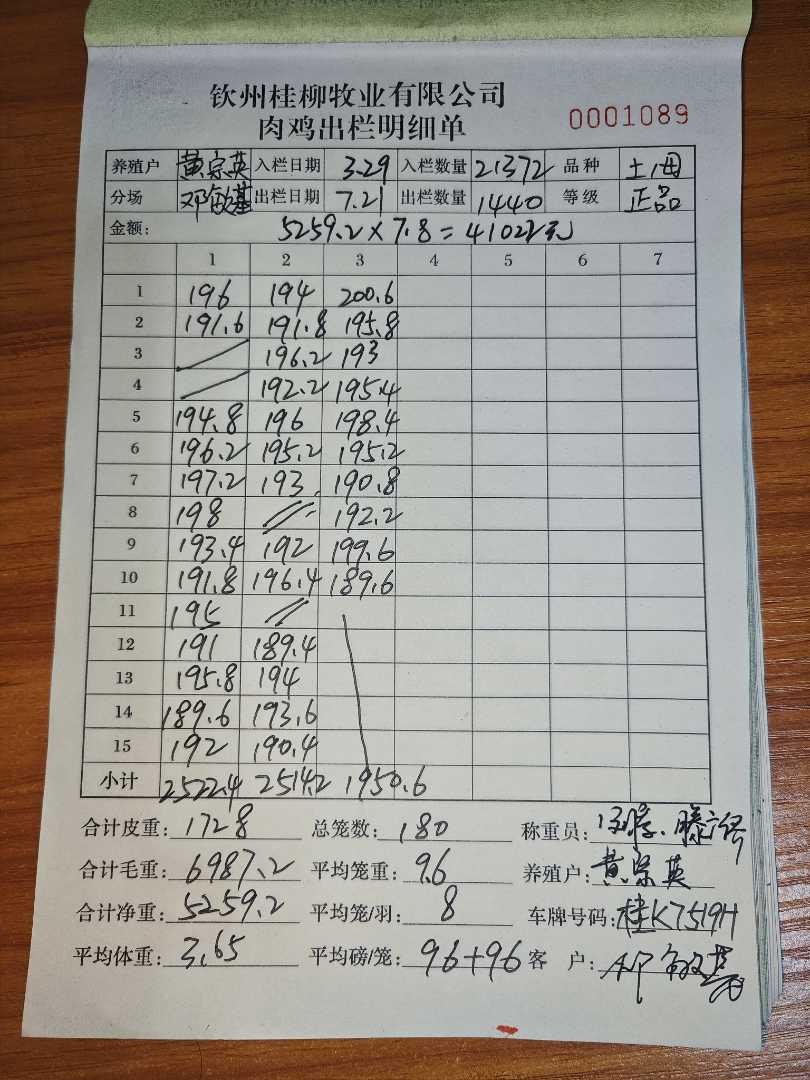 钦州桂柳牧业有限公司
肉鸡出栏明细单 0001089
养殖户 黄宗英 入栏日期 3.29 入栏数量 21372 品种 土母
分场 邓敏基 出栏日期 7.21 出栏数量 1440 等级 正品
金额: 5259.2×7.8=41022元
1 2 3 4 5 6 7
1 196 194 200.6
2 191.6 191.8 195.8
3 196.2 193
4 192.2 195.4
5 194.8 196 198.4
6 196.2 195.2 195.2
7 197.2 193 190.8
8 198 192.2
9 193.4 192 199.6
10 191.8 196.4 189.6
11 195
12 191 189.4
13 195.8 194
14 189.6 193.6
15 192 190.4
小计 2522.4 2514.2 1950.6
合计皮重: 1728 总笼数: 180 称重员:
合计毛重: 6987.2 平均笼重: 9.6 养殖户: 黄宗英
合计净重: 5259.2 平均笼/羽: 8 车牌号码: 桂K7519H
平均体重: 3.65 平均磅/笼: 96+96 客 户: 邓敏基